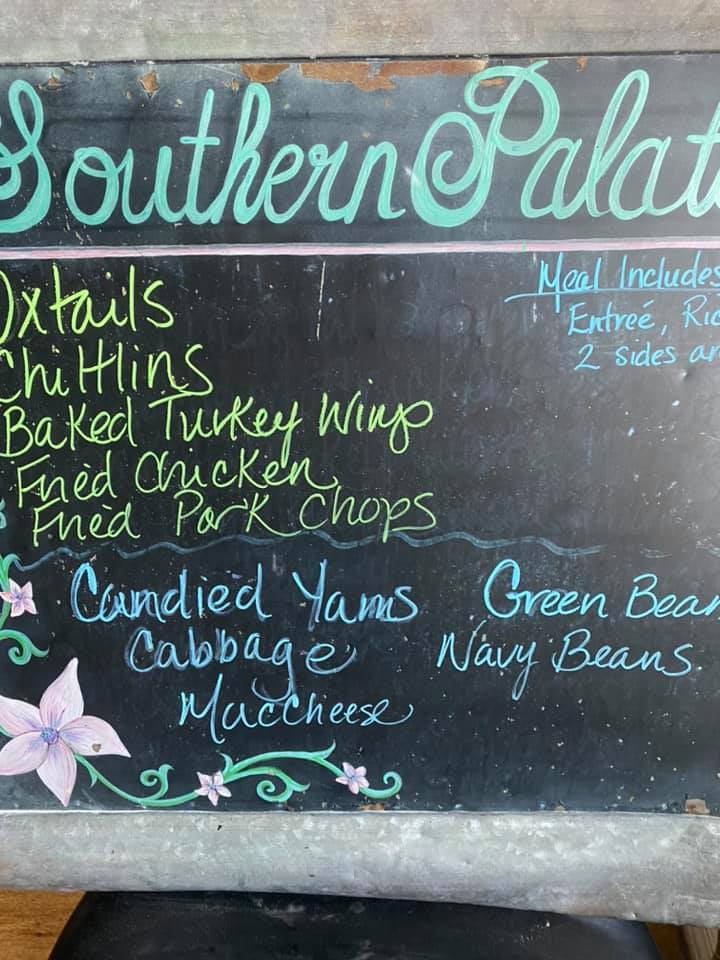 Southern Palat
Oxtails
Chittlins
Baked Turkey Wings
Fried Chicken
Fried Pork Chops
Meal Includes
Entreé, Ric
2 sides an
Candied Yams
Cabbage
Maccheese
Green Bean
Navy Beans.